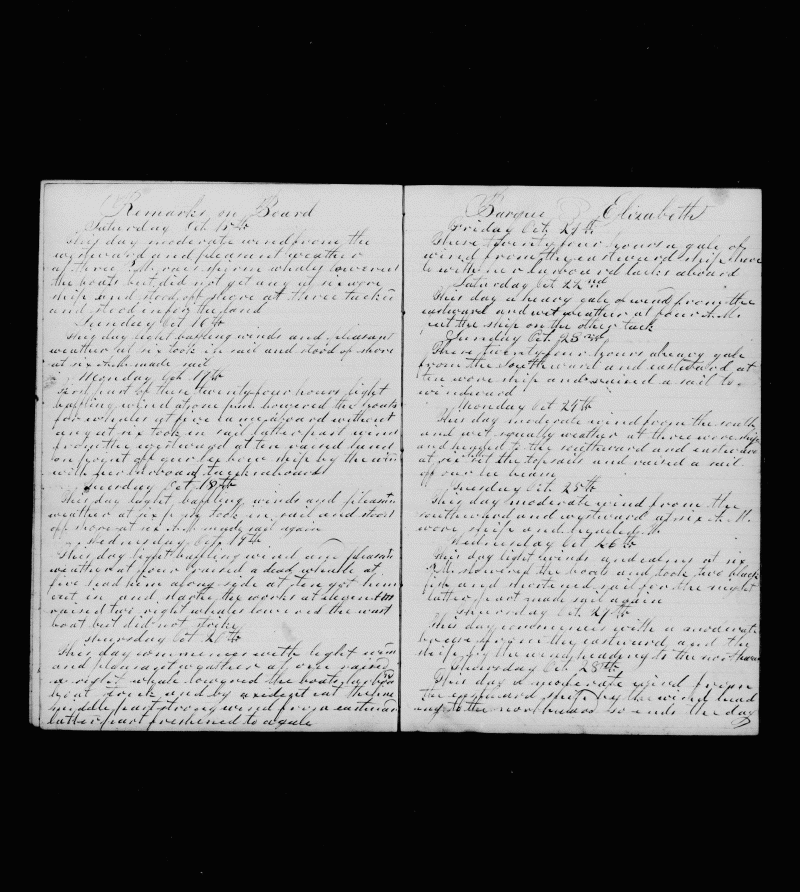 Remarks on Board
Saturday Oct 15th
This day moderate wind from the
westward and pleasant weather
at three P.M. raised sperm whales lowered
the boats but did not get any at six wore
ship and stood off shore at three tacked
and stood in for the land
Sunday Oct 16th
This day light baffling winds and pleasant
weather at six took in sail and stood off shore
at six A.M. made sail
Monday Oct 17th
First part of these twenty four hours light
baffling wind at one P.M. lowered the boats
for whales at five came aboard without
any at six took in sail latter part wind
from the westward at ten raised land
one point off our lee bow ship by the wind
with her larboard tacks aboard
Tuesday Oct 18th
This day light baffling winds and pleasant
weather at six P.M. took in sail and stood
off shore at six A.M. made sail again
Wednesday Oct 19th
This day light baffling wind and pleasant
weather at four raised a dead whale at
five had him along side at ten got him
cut in and started the works at eleven
raised two right whales lowered the waist
boat but did not strike
Thursday Oct 20th
This day commences with light wind
and pleasant weather at one raised
a right whale lowered the boats larboard
boat struck and by accident cut the line
middle part strong wind from eastward
latter part freshened to a gale
Barque Elizabeth
Friday Oct. 21th
These twenty four hours a gale of
wind from the eastward ship hove
to with her larboard tacks aboard
Saturday Oct 22nd
This day a heavy gale of wind from the
eastward and wet weather at four A.M.
put the ship on the other tack
Sunday Oct. 23rd
These twenty four hours a heavy gale
from the southward and eastward at
ten wore ship and raised a sail to
windward
Monday Oct 24th
This day moderate wind from the south
and wet squally weather at three wore ship
and headed to the southward and eastward
at six set the topsails and raised a sail
off our lee beam
Tuesday Oct. 25th
This day moderate wind from the
southward and westward at six A.M.
wore ship and headed
Wednesday Oct 26th
This day light winds and calms at six
P.M. lowered the boats and took two black
fish and shortened sail for the night
latter part made sail again
Thursday Oct. 27th
This day commences with a moderate
breeze from the eastward and the
ship by the wind heading to the northward
Thursday Oct 28th
This day a moderate wind from
the eastward ship by the wind head
ing to the northward so ends the day